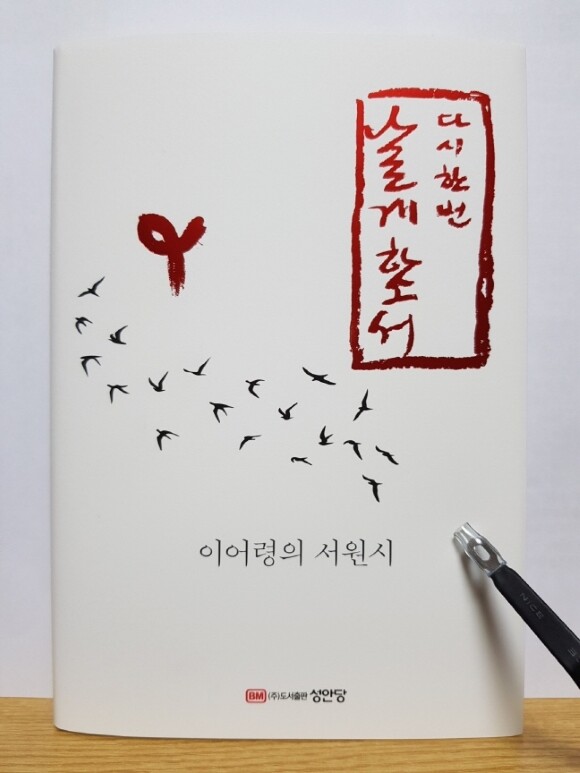 다시한번
날게 하소서
이어령의 서원시
BM (주)도서출판 성안당
NICE